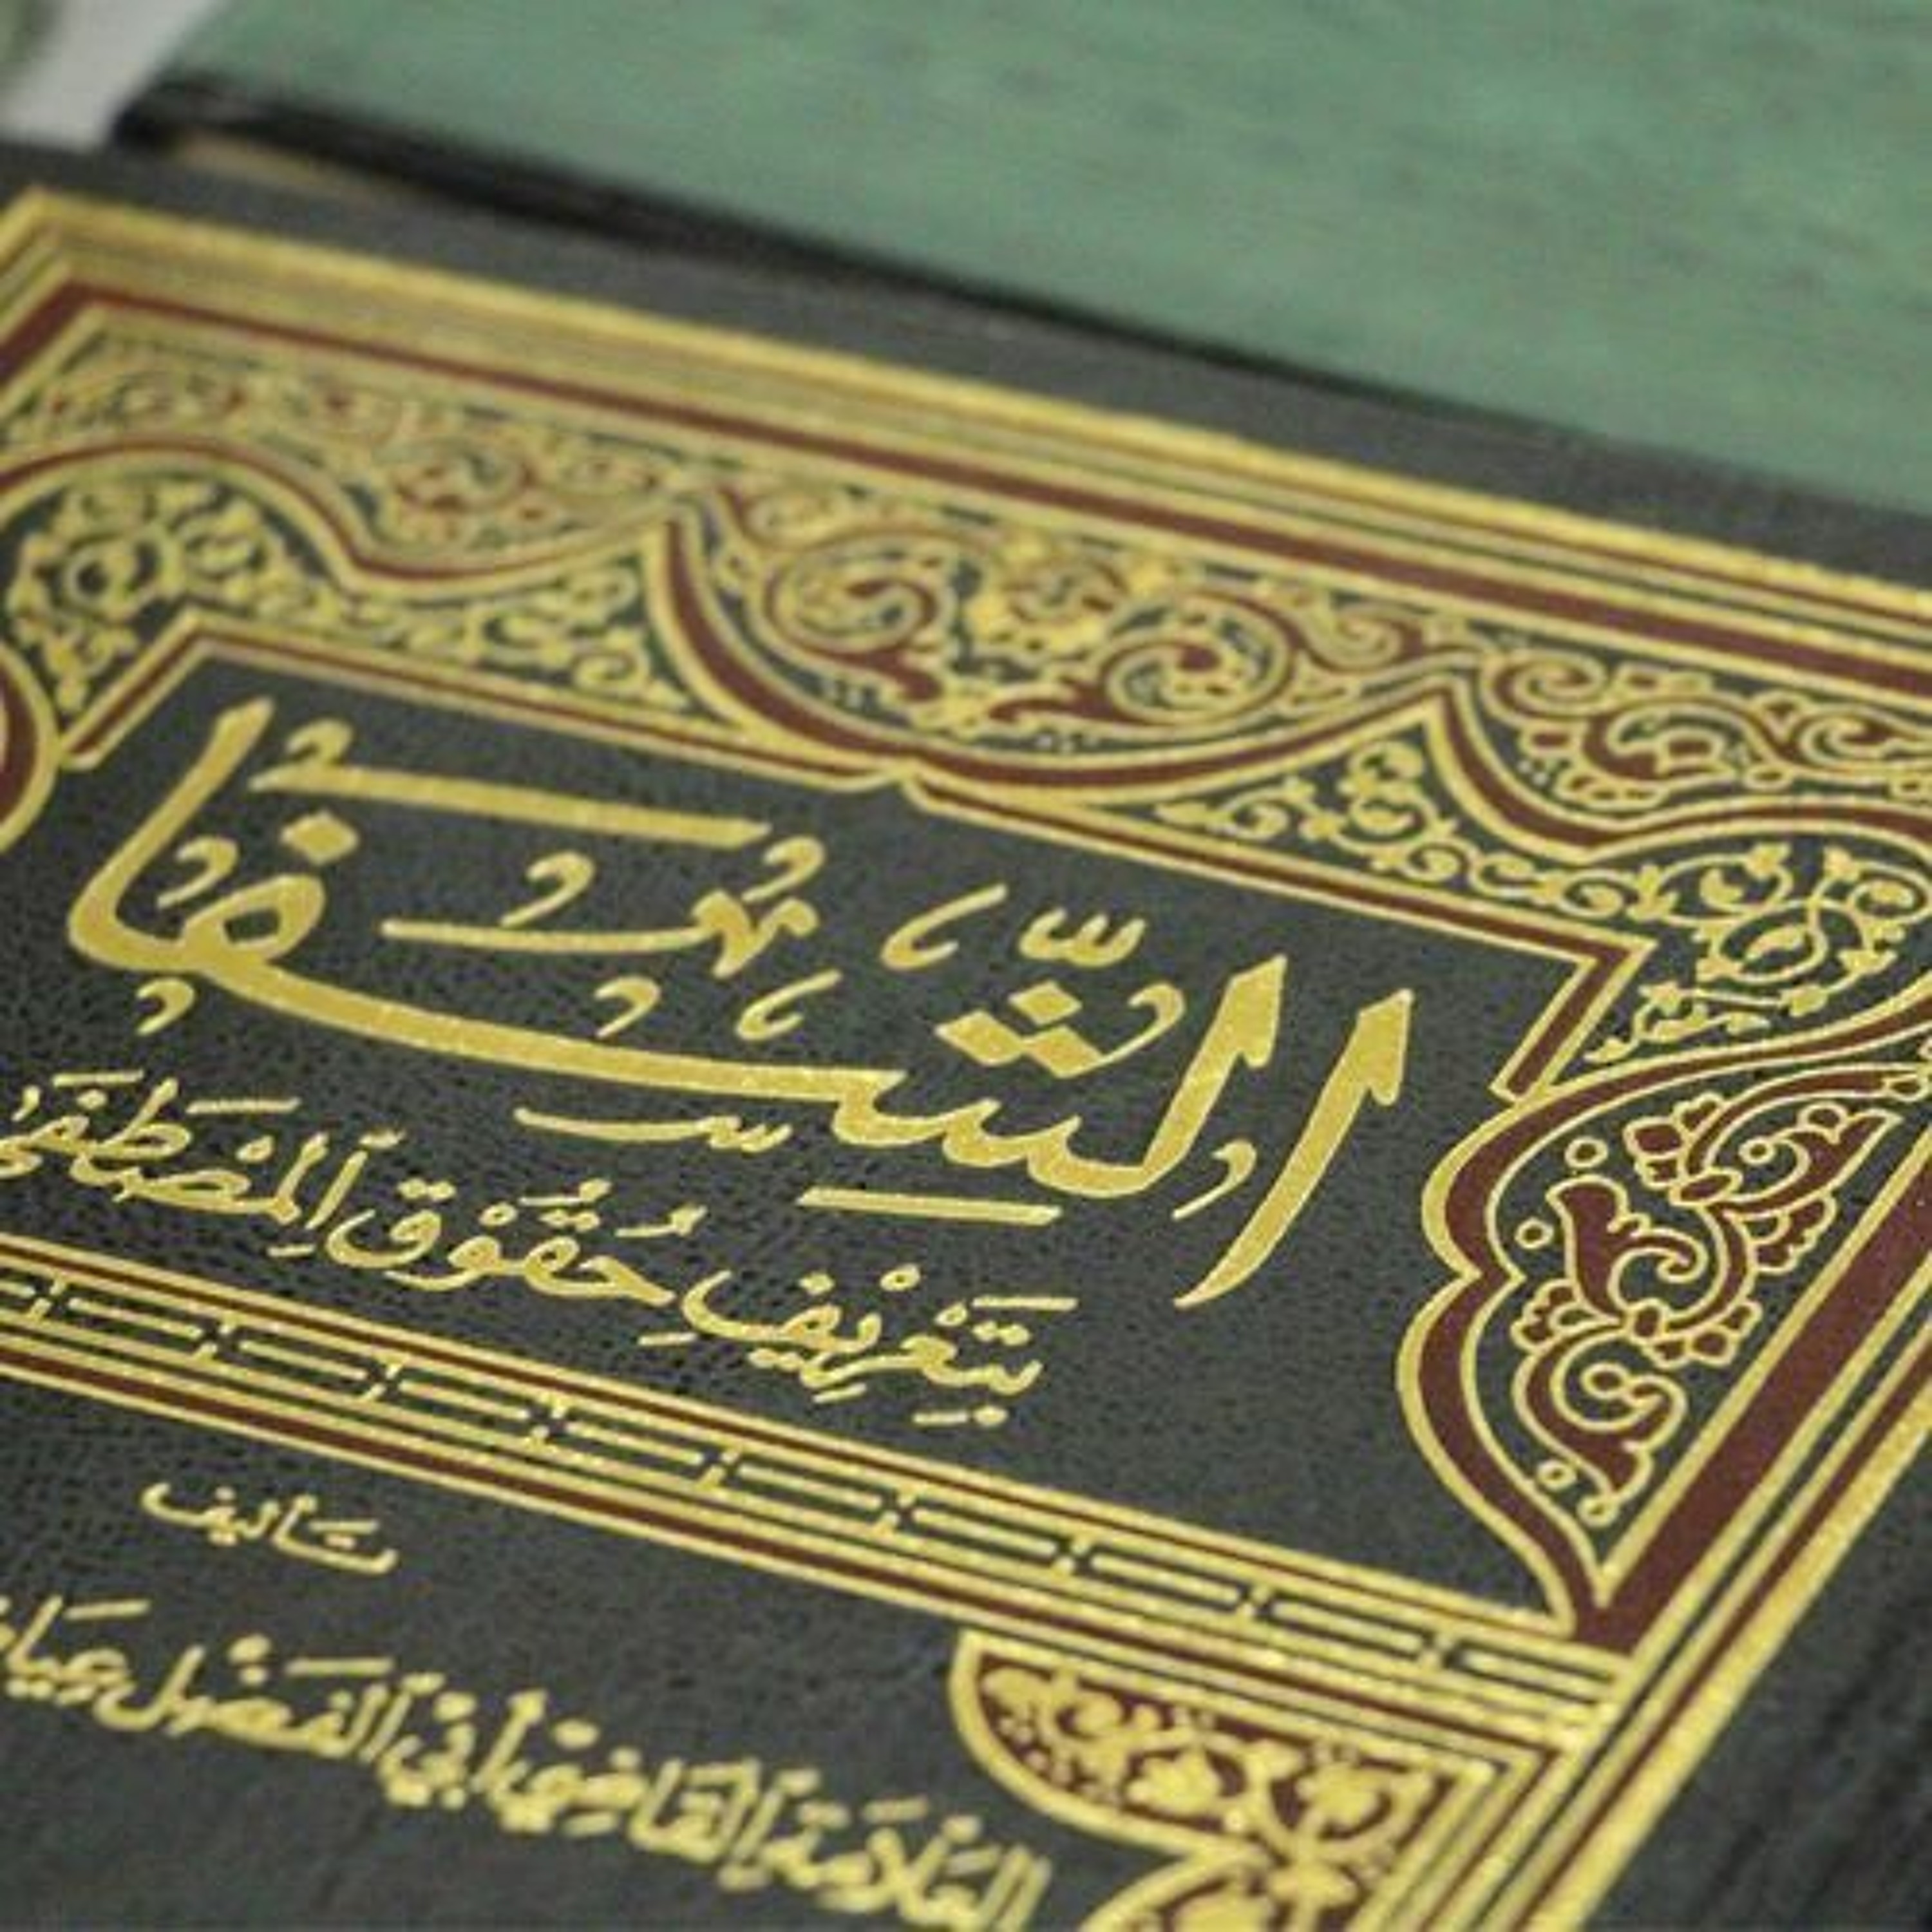 الشِّفَا
بِتَعْرِيفِ حُقُوقِ الْمُصْطَفَى
تَأليف
العَلَّامَة القَاضِي أَبِي الفَضْل عِيَاض